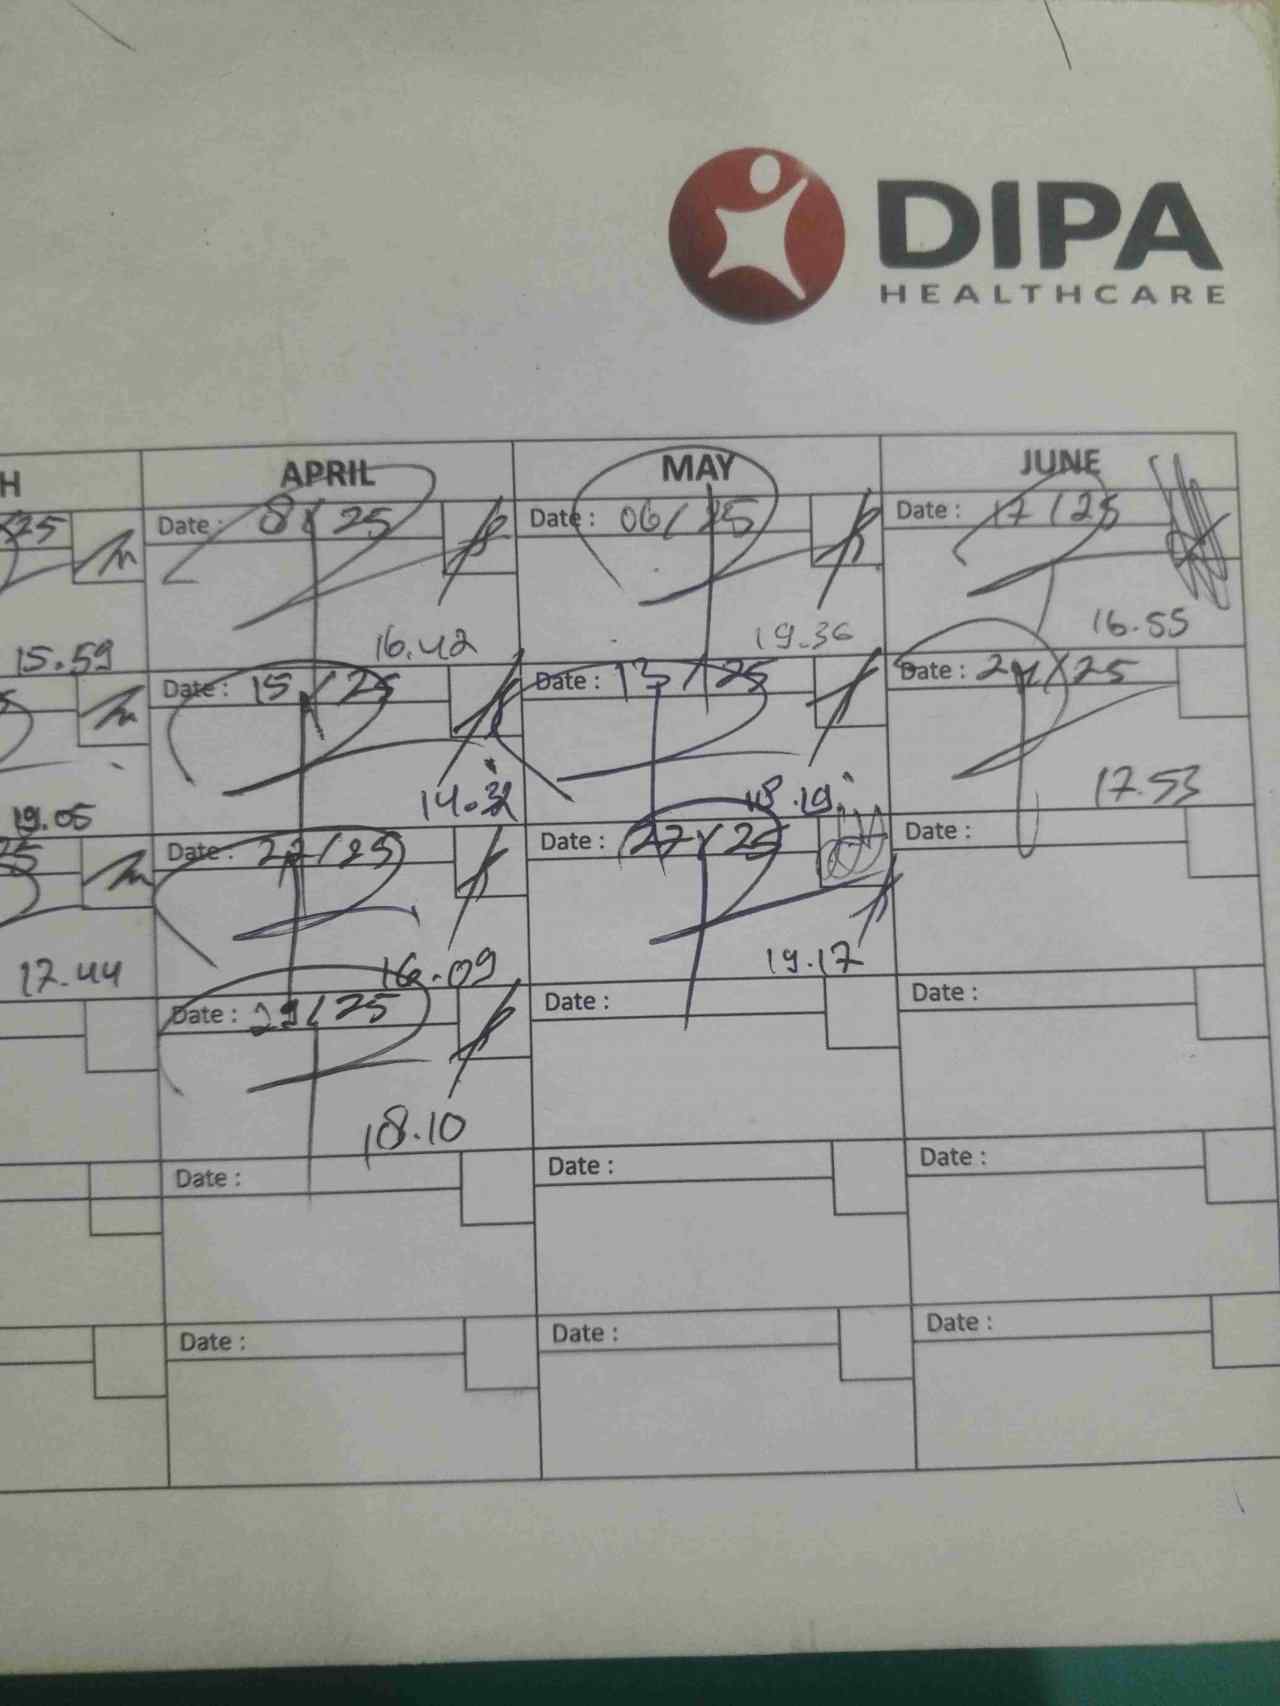 DIPA
HEALTHCARE
H
APRIL
MAY
JUNE
25
Date : 8/25
Date : 06/25
Date : 17/25
15.59
16.42
19.36
16.55
Date : 15/25
Date : 13/25
Date : 24/25
19.05
14.32
18.19
17.53
25
Date : 22/25
Date : 27/25
Date :
17.44
16.09
19.17
Date : 29/25
Date :
Date :
18.10
Date :
Date :
Date :
Date :
Date :
Date :